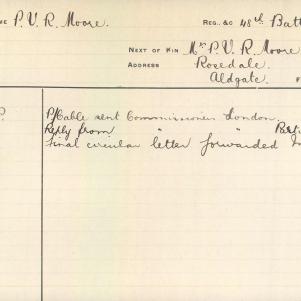 P. V. R. Moore.
REG. &C 48th Batt
NEXT OF KIN Mr P. V. R. Moore
ADDRESS Rosedale.
Aldgate.
P/Cable sent Commissioner London.
Reply from " "
Final circular letter forwarded